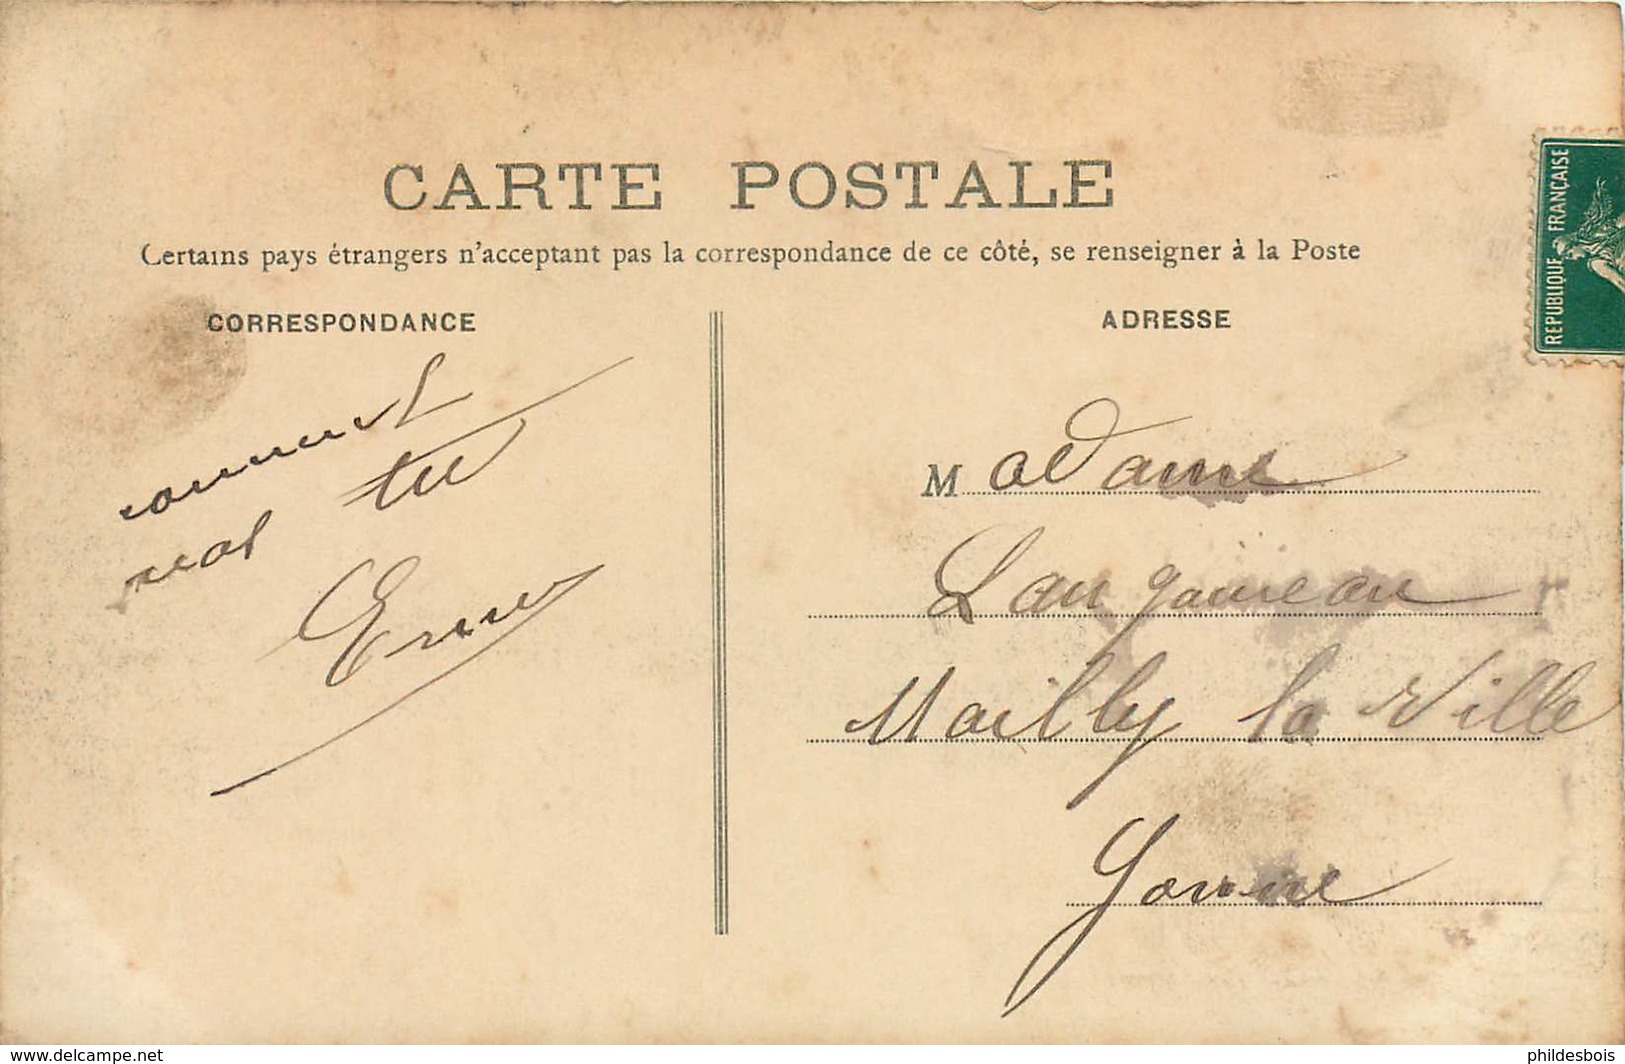 CARTE POSTALE
Certains pays étrangers n'acceptant pas la correspondance de ce côté, se renseigner à la Poste
CORRESPONDANCE
ADRESSE
REPUBLIQUE FRANÇAISE
tu
Madame
Mailly la Ville
Yonne
www.delcampe.net
phildesbois